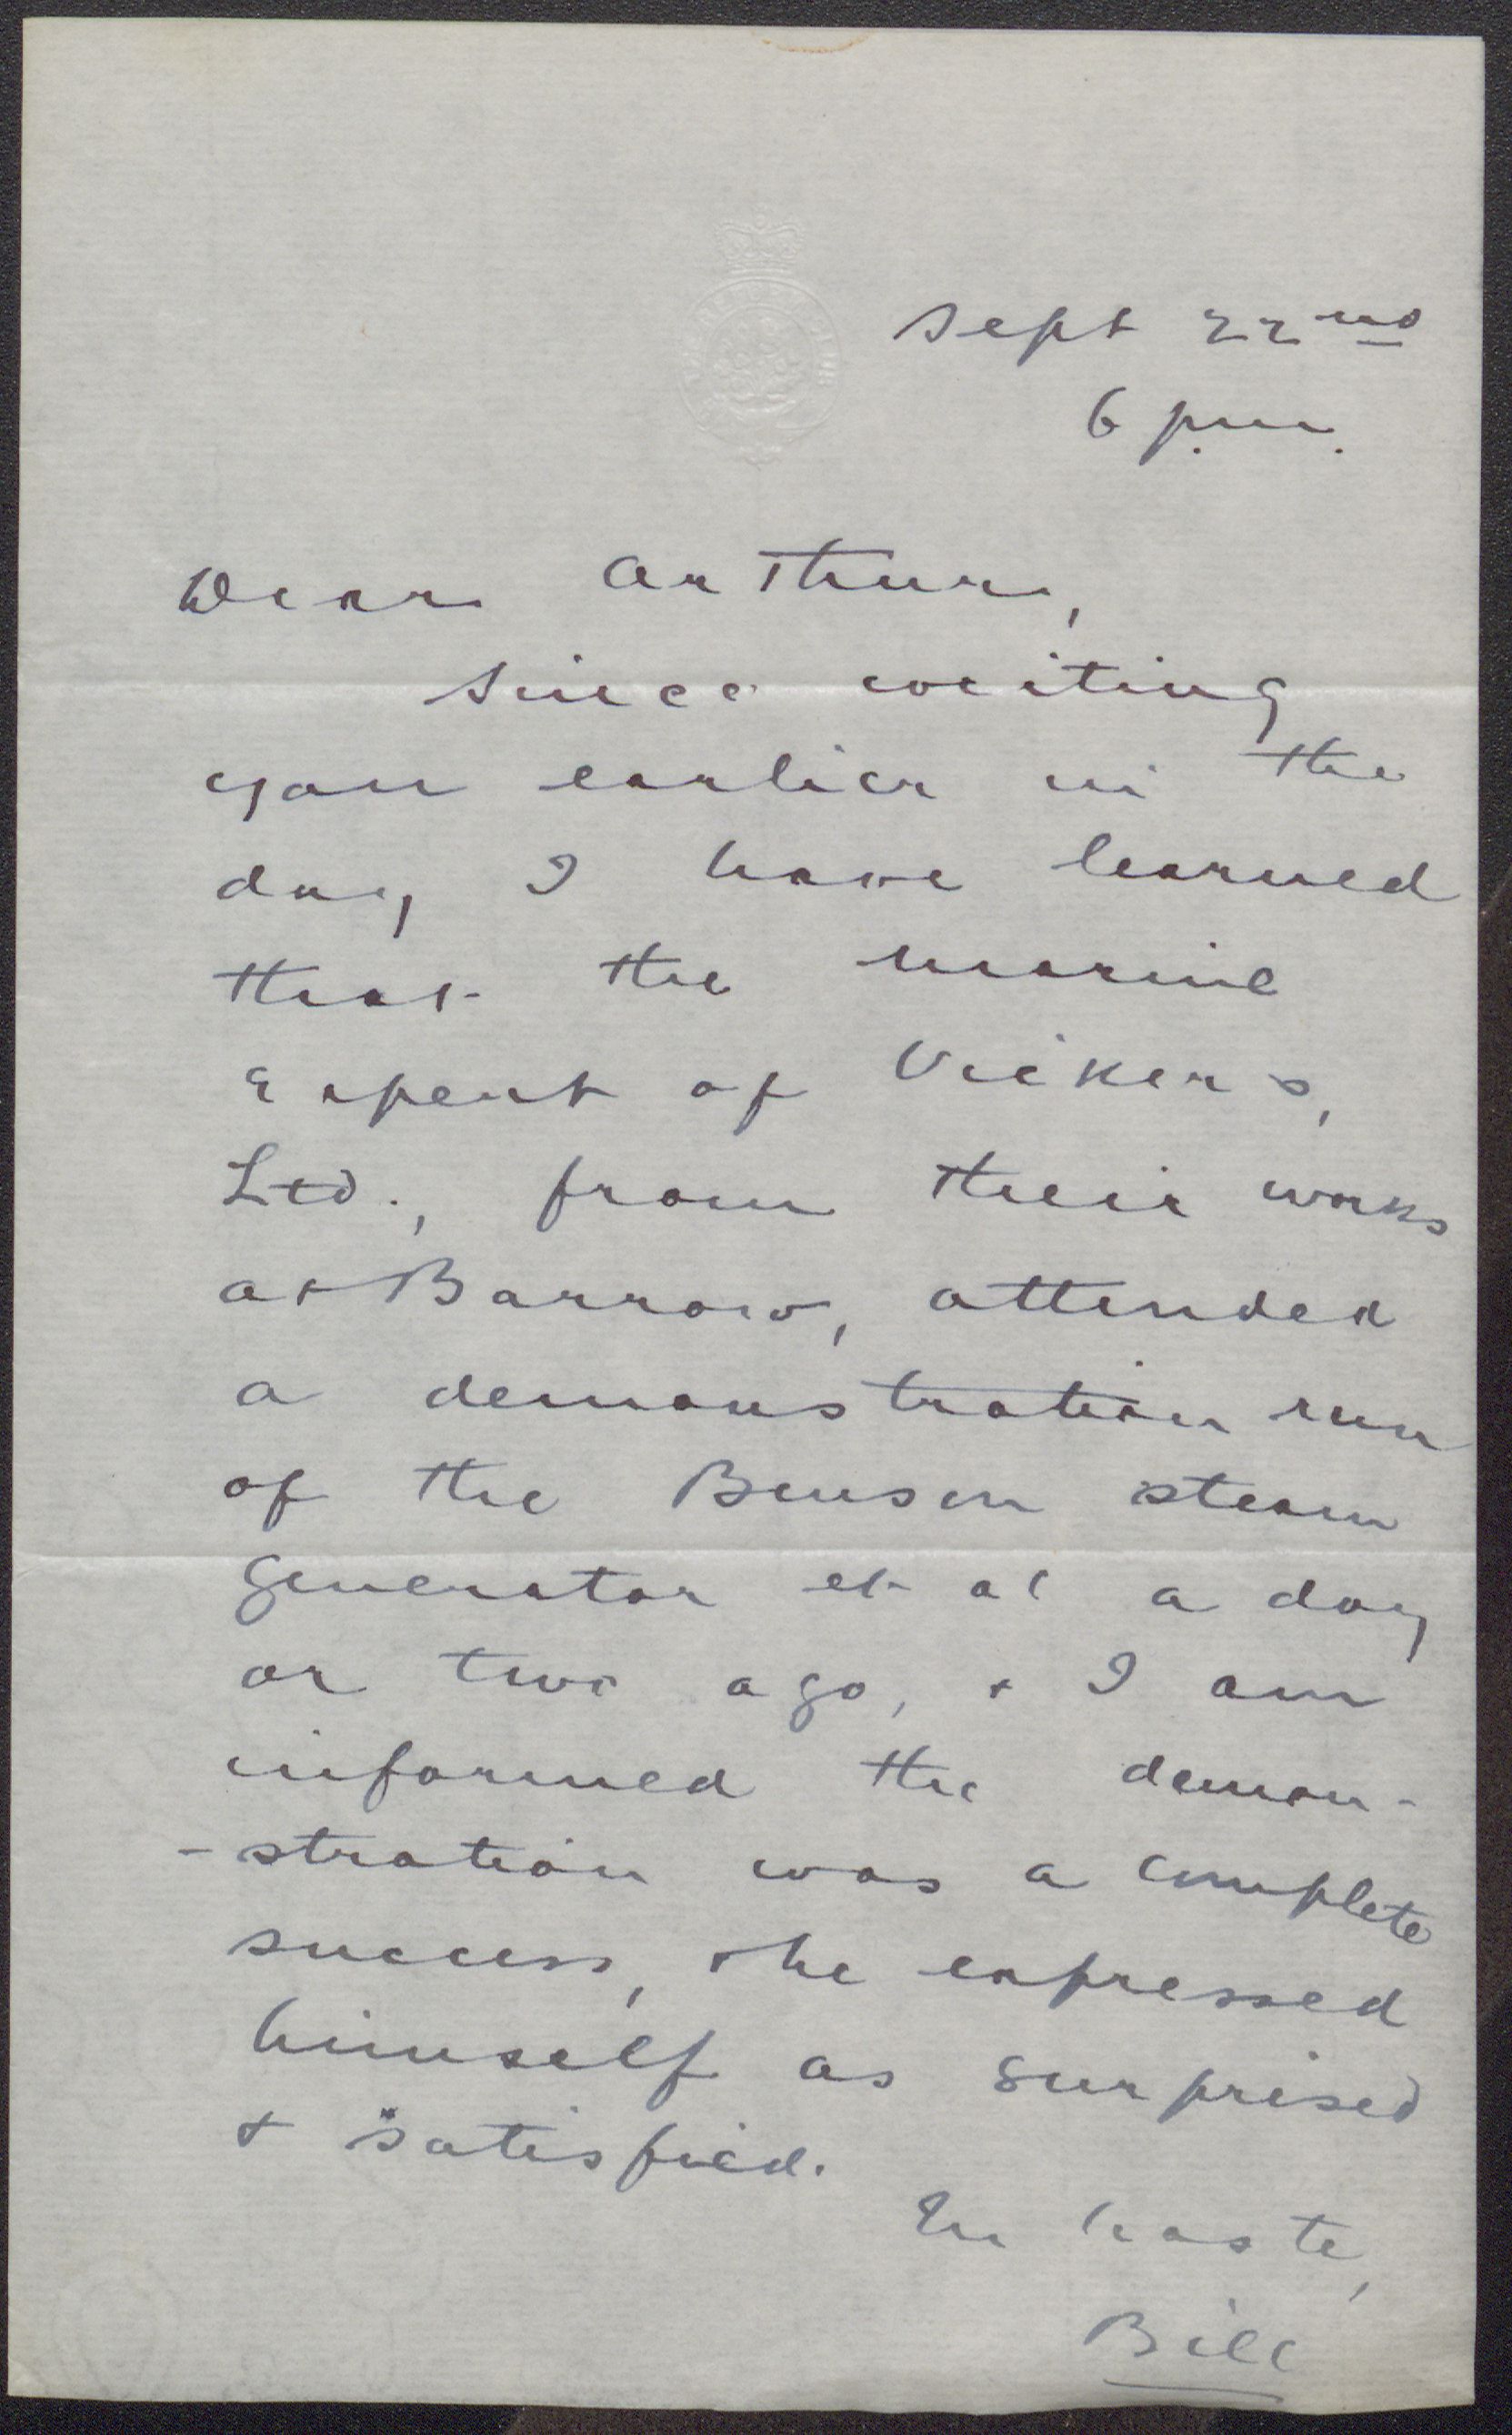 Sept 22nd
6 p.m.
Dear Arthur,
Since writing
you earlier in the
day I have learned
that the marine
expert of Vickers,
Ltd., from their works
at Barrow, attended
a demonstration run
of the Benson steam
generator et al a day
or two ago, & I am
informed the demon-
-stration was a complete
success, & he expressed
himself as surprised
& satisfied.
In haste,
Bill